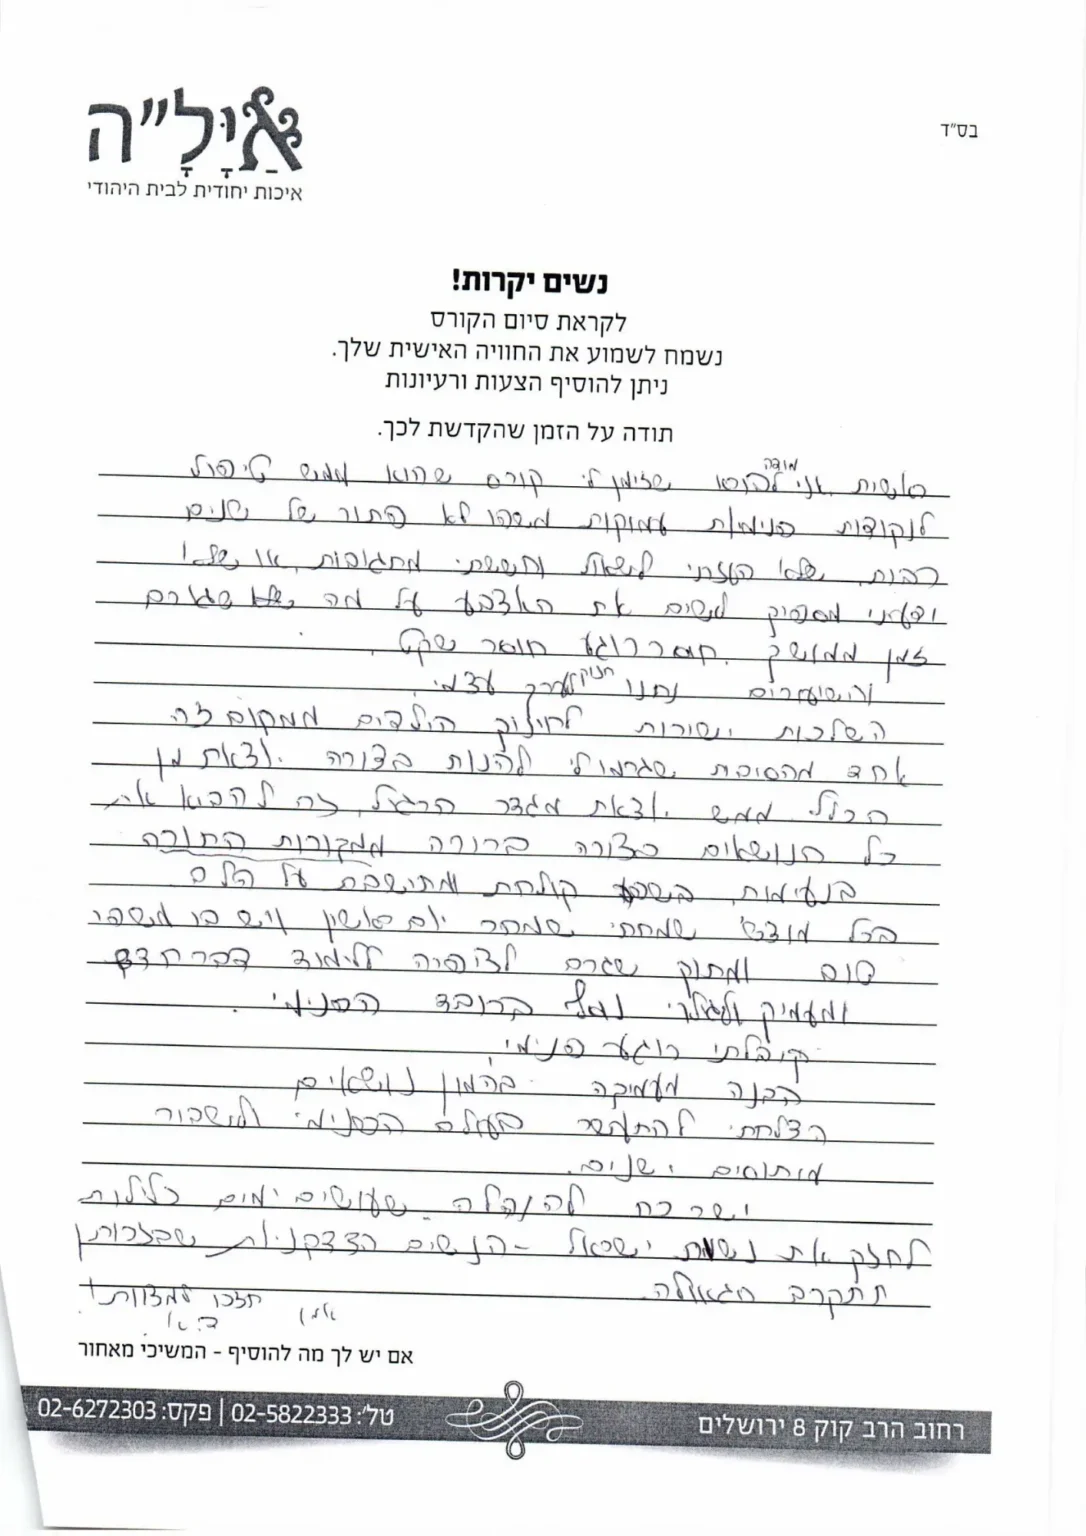 בס"ד
אַיָּלָ"ה
איכות יחודית לבית היהודי
נשים יקרות!
לקראת סיום הקורס
נשמח לשמוע את החוויה האישית שלך.
ניתן להוסיף הצעות ורעיונות
תודה על הזמן שהקדשת לכך.
מודה
ראשית אני לבורא שזימן לי קורס שהוא ממש טיפול
לנקודות פנימיות עמוקות משהו לא פתור של שנים
רבות, שלא העזתי לשאול וחששתי מתגובות, או שלא
ידעתי מספיק לשים את האצבע על מה שגורם
זמן ממושך חוסר רוגע חוסר שקט.
והשיעורים נתנו חיזוק לערך עצמי.
השלכות ישירות לחינוך הילדים ממקום זה
אחד מהסיבות שגרמו לי להנות בצורה יוצאת מן
הכלל ממש יוצאת מגדר הרגיל, זה להביא את
כל הנושאים בצורה ברורה ממקורות התורה
בנעימות, בשפע קולחת ומתישבת על הלב
בכל מוצ"ש שמחתי שמחר יום ראשון ויש בו משהו
טוב ומתוק שגרם לציפיה ללימוד דבר חדש
ומעמיק ברובד הפנימי.
קיבלתי רוגע פנימי,
הבנה מעמיקה בהמון נושאים
הצלחתי להתעשר בעולם הפנימי ולשבור
מיתוסים ישנים.
ישר כח להנהלה שעושים ימים כלילות
לחזק את נשמת ישראל - הנשים הצדקניות שבזכותן
תתקרב הגאולה.
תזכו למצוות!
אם יש לך מה להוסיף - המשיכי מאחור
רחוב הרב קוק 8 ירושלים
טל': 02-5822333 | פקס: 02-6272303